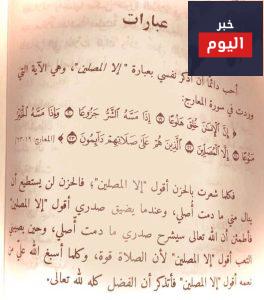 خبر
اليوم
عبارات
أحب دائمًا أن أذكر نفسي بعبارة "إلا المصلين"، وهي الآية التي
وردت في سورة المعارج:
﴿ إِنَّ الْإِنسَانَ خُلِقَ هَلُوعًا ۝ إِذَا مَسَّهُ الشَّرُّ جَزُوعًا ۝ وَإِذَا مَسَّهُ الْخَيْرُ
مَنُوعًا ۝ إِلَّا الْمُصَلِّينَ ۝ الَّذِينَ هُمْ عَلَىٰ صَلَاتِهِمْ دَائِمُونَ ﴾ (المعارج: ١٩-٢٣)
فكلما شعرت بالحزن أقول "إلا المصلين"؛ فالحزن لن يستطيع أن
ينال مني ما دمت أصلي، وعندما يضيق صدري أقول "إلا المصلين"
فأطمئن أن الله تعالى سيشرح صدري ما دمت أصلي، وحين يصيبني
التعب أقول "إلا المصلين" لأن الصلاة قوة، وكلما أسبغ الله عليّ من
نعمه أقول "إلا المصلين" فأتذكر أن الفضل كله لله تعالى.